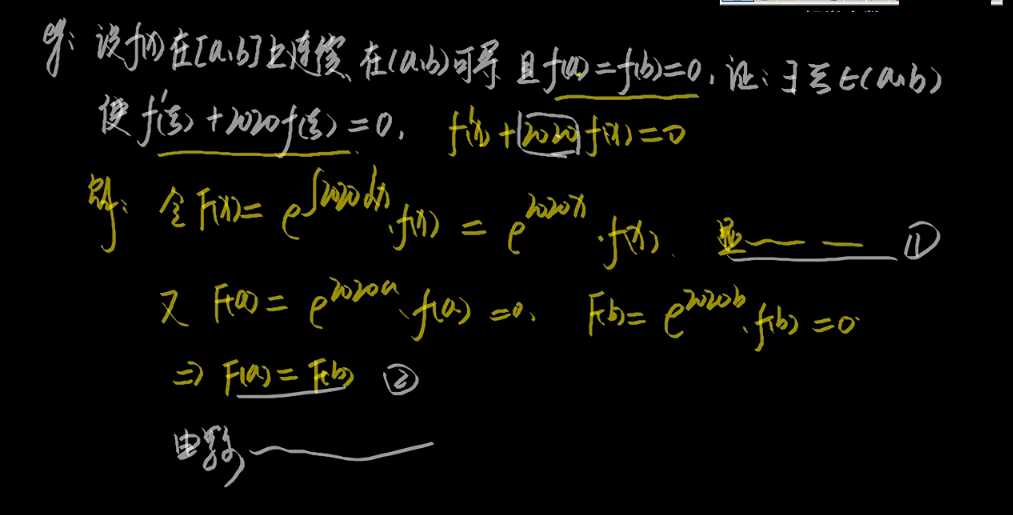 例: 设f(x)在[a,b]上连续,在(a,b)可导 且f(a)=f(b)=0,证:∃ξ∈(a,b)
使f'(ξ)+2020f(ξ)=0. f'(x)+2020f(x)=0
令F(x)=e^{∫2020dx}·f(x)=e^{2020x}·f(x). 显 ①
又 F(a)=e^{2020a}·f(a)=0. F(b)=e^{2020b}·f(b)=0
⇒ F(a)=F(b) ②
由罗